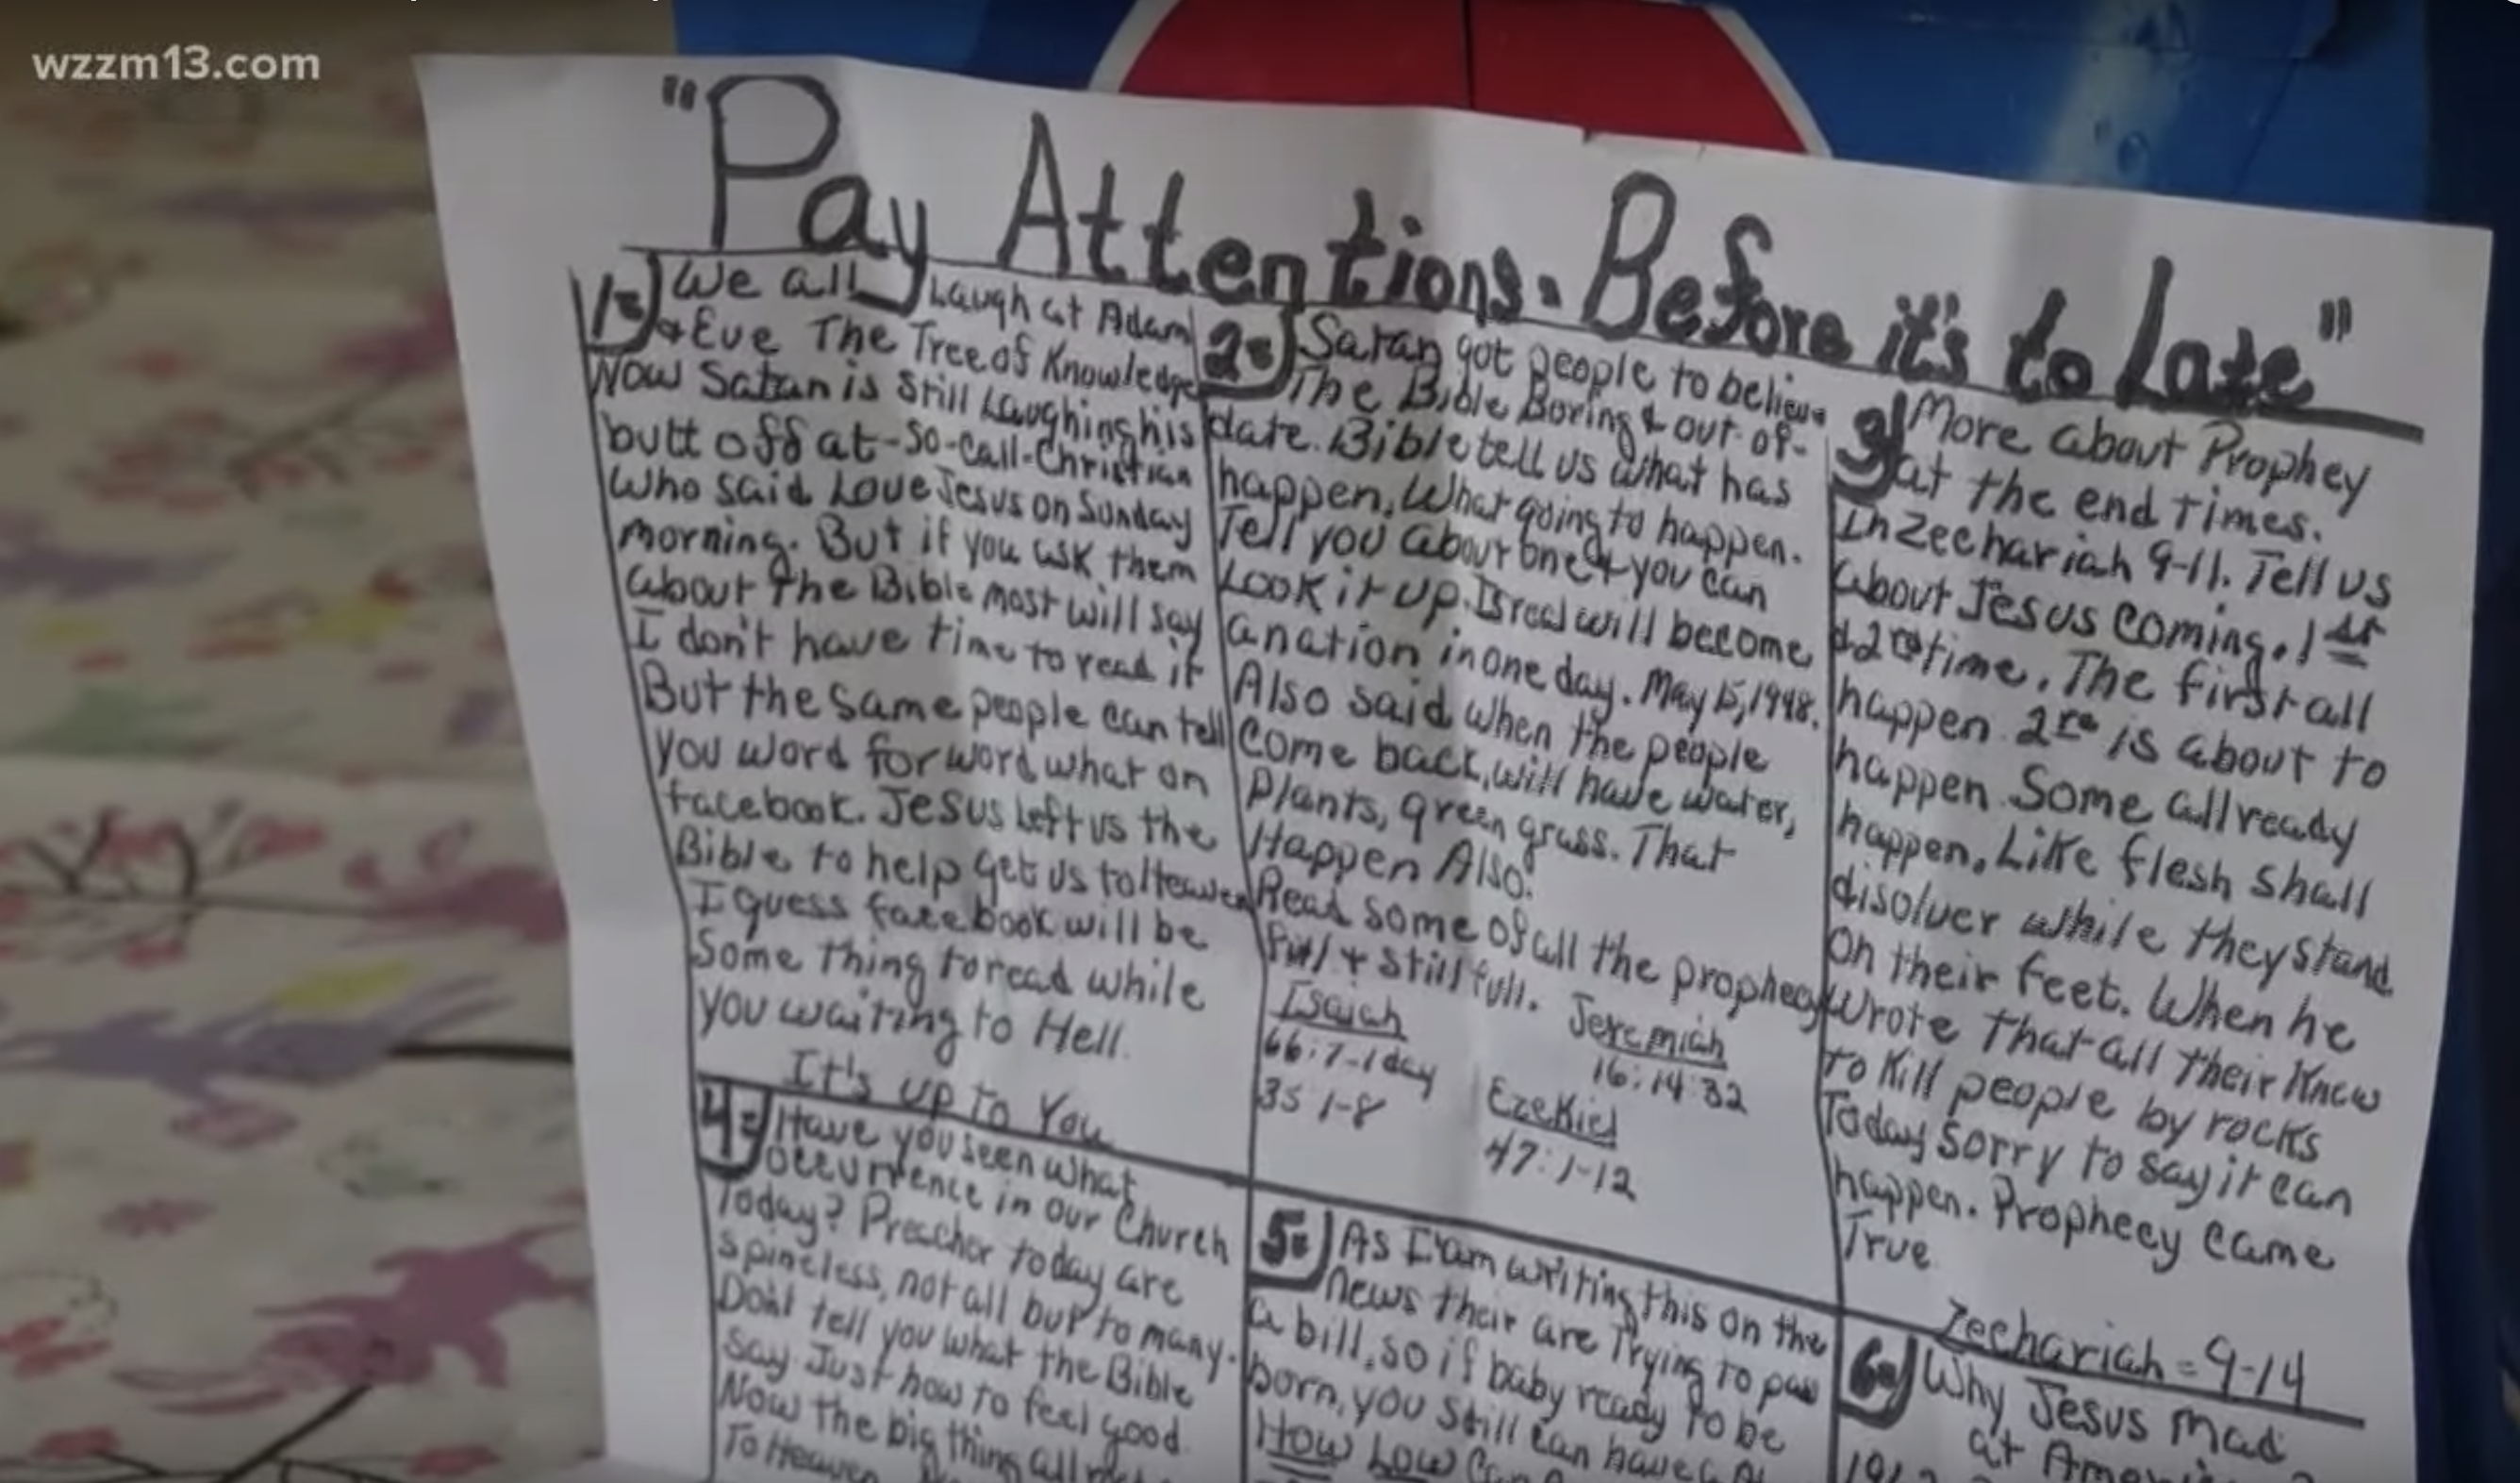 wzzm13.com
"Pay Attentions. Before it's to Late"
1-) We all Laugh at Adam
& Eve The Tree of Knowledge
Now Satan is still Laughing his
butt off at-So-Call-Christian
Who said Love Jesus on Sunday
morning. But if you ask them
about The Bible most will say
I don't have time to read it
But the same people can tell
you word for word what on
facebook. Jesus Left us the
Bible to help get us to Heaven
I guess facebook will be
Some thing to read while
you waiting to Hell.
It's up to You
2-) Satan got people to believe
The Bible Boring & out-of-
date. Bible tell us what has
happen, What going to happen.
Tell you about one & you can
Look it up. Isreal will become
a nation in one day. May 15, 1948.
Also said when the people
come back, will have water,
Plants, green grass. That
Happen Also.
Read some of all the prophecy
full & still full.
Isaiah
66:7-1 day
35 1-8
Jeremiah
16:14:32
Ezekiel
47:1-12
3-) More about Prophey
at the end times.
In Zechariah 9-11. Tell us
about Jesus coming. 1st
& 2nd time. The first all
happen 2nd is about to
happen. Some allready
happen. Like flesh shall
disolver while they stand
On their feet. When he
Wrote That all their Knew
to Kill people by rocks
Today Sorry to say it can
happen. Prophecy came
True
Zechariah = 9-14
4-) Have you seen what
occurrence in our Church
Today? Preachor today are
spineless, not all but to many.
Don't tell you what the Bible
say. Just how to feel good
Now the big thing all
To Heaven
5-) As I am writing this on the
News their are Trying to pass
a bill, so if baby ready to be
born, you still can have
How Low
6-) Why Jesus mad
at